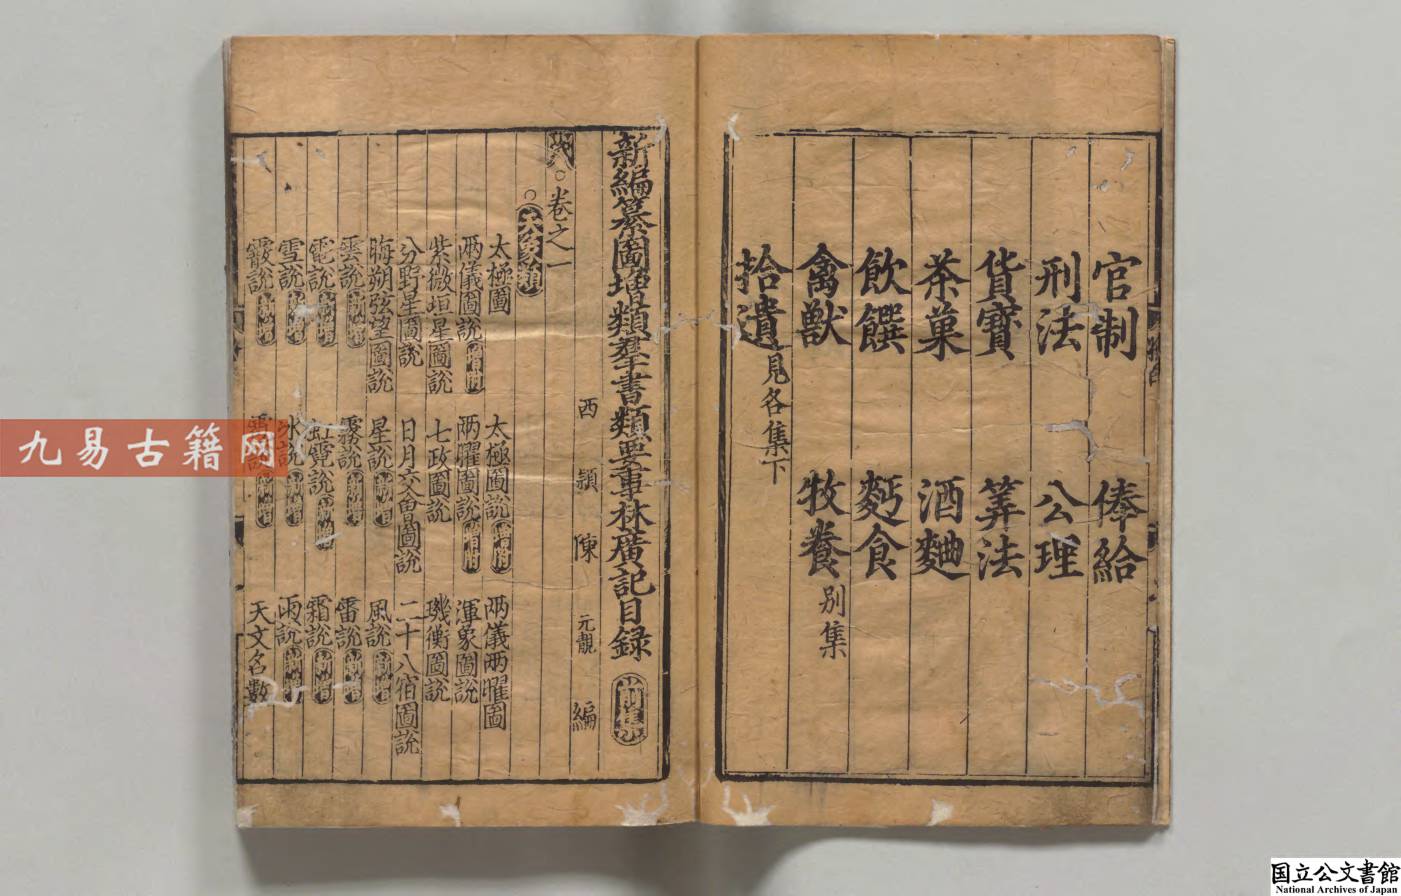 官制 俸給
刑法 公理
貨寶 筭法
茶菓 酒麯
飲饌 麪食
禽獸 牧養別集
拾遺見各集下
新編纂圖增類羣書類要事林廣記目錄 前集
西 潁 陳 元靚 編
卷之一
天象類
太極圖 太極圖說 兩儀兩曜圖
兩儀圖說 兩曜圖說 渾象圖說
紫微垣星圖 七政圖說 璣衡圖說
分野星圖說 日月交會圖說 二十八宿圖說
晦朔弦望圖說 星說 風說
雲說 霧說 雷說
電說 虹霓說 霜說
雪說 冰說 雨說
霰說 天文名數
九易古籍网
国立公文書館
National Archives of Japan